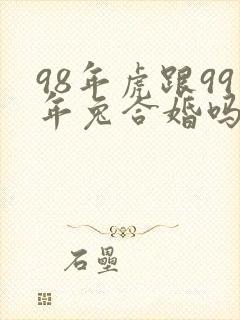 98年虎跟99
年兔合婚吗
石壘